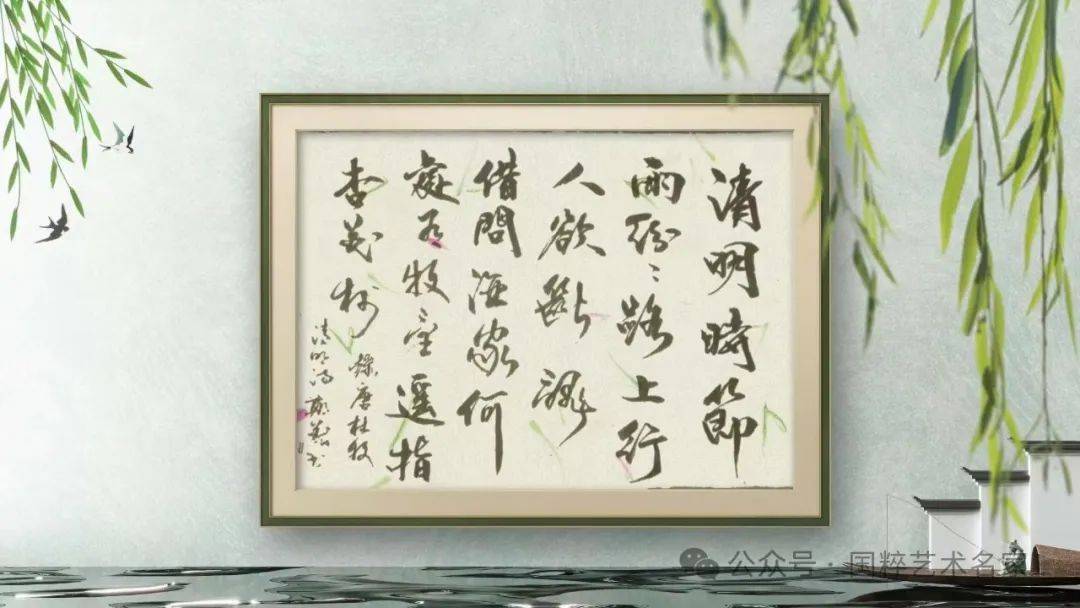 清明時節
雨紛〻路上行
人欲斷魂
借問酒家何
處有牧童遙指
杏花村
錄唐杜牧
清明詩
公众号 · 国粹艺术名家